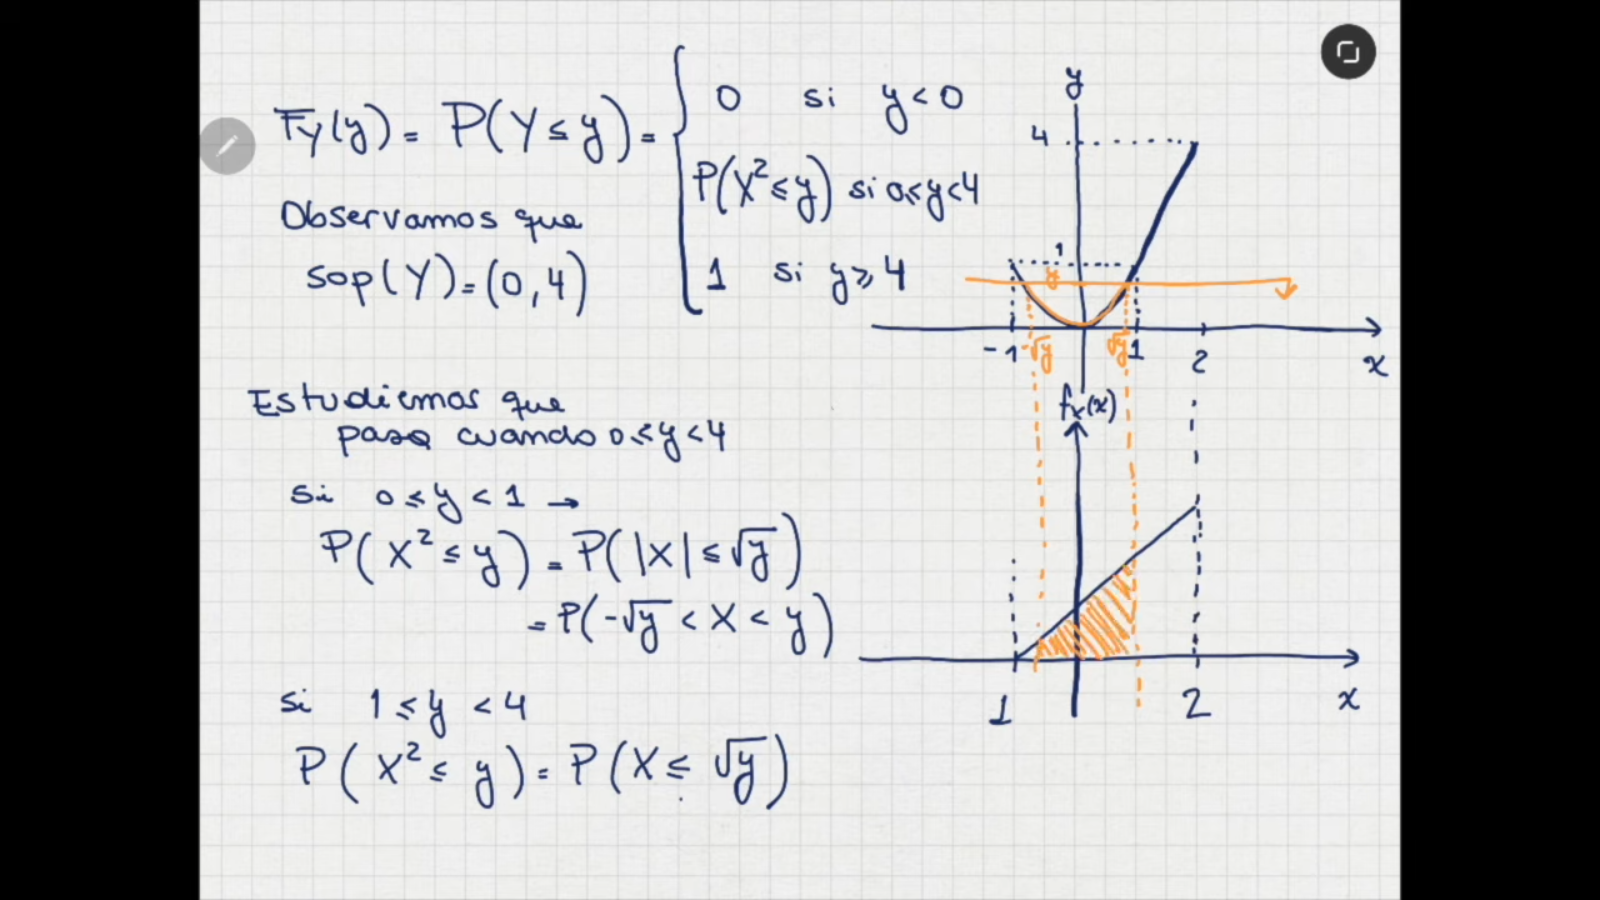 F_Y(y) = P(Y ≤ y) = {
0 si y < 0
P(X² ≤ y) si 0 ≤ y < 4
1 si y ≥ 4
Observamos que
sop(Y) = (0, 4)
Estudiemos que
pasa cuando 0 ≤ y < 4
si 0 ≤ y < 1 →
P(X² ≤ y) = P(|X| ≤ √y)
= P(-√y < X < y)
si 1 ≤ y < 4
P(X² ≤ y) = P(X ≤ √y)
y
4
1
y
-1 -√y √y 1 2
x
f_X(x)
1 2 x